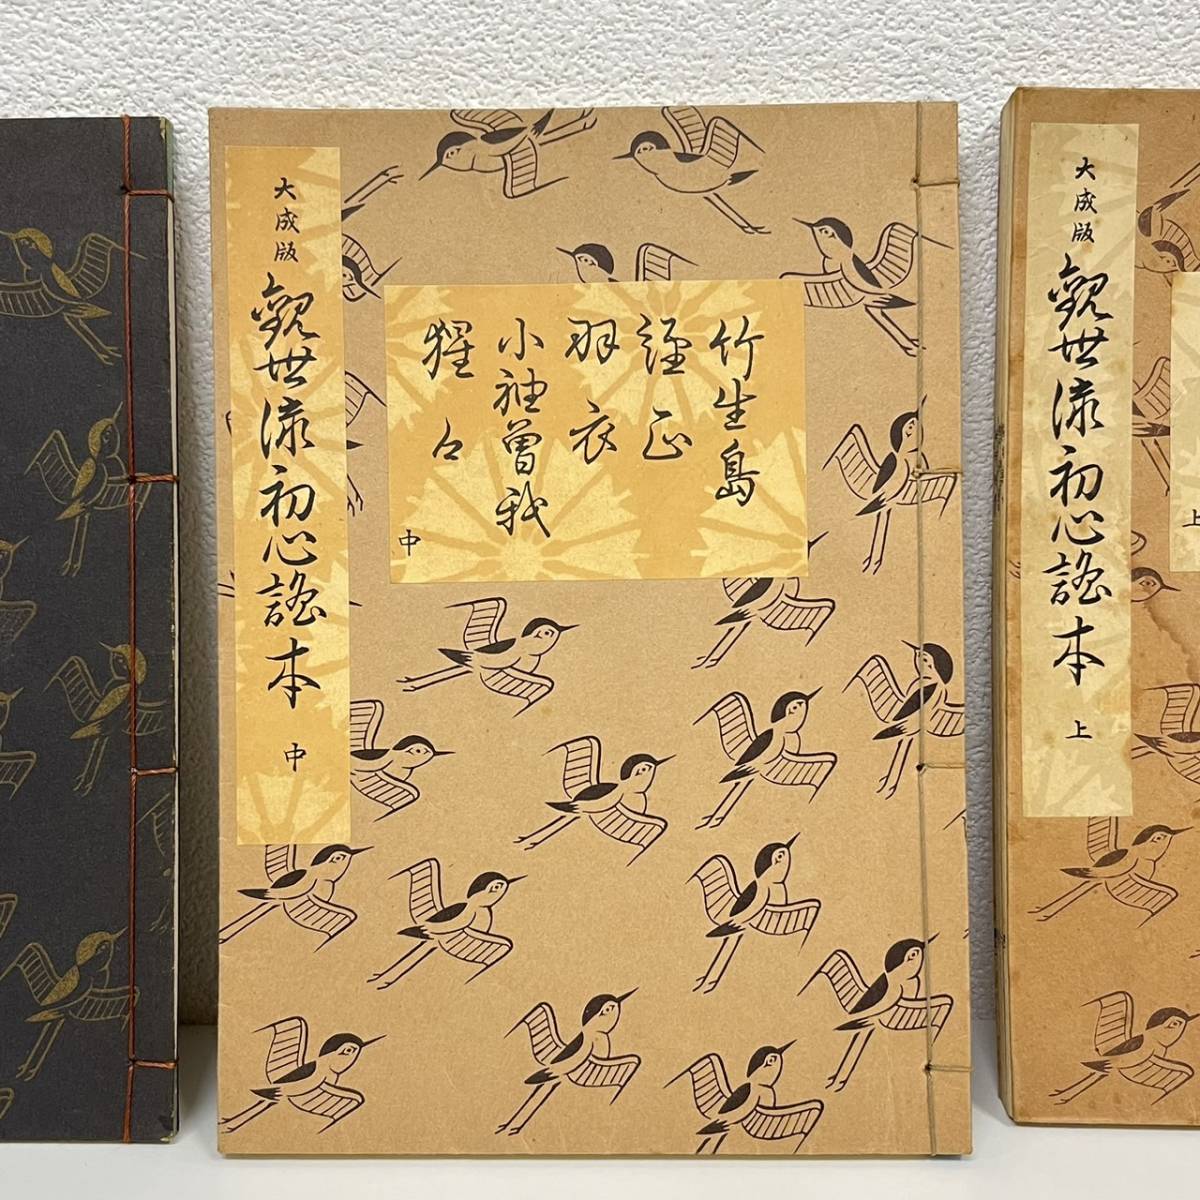 大成版
觀世流初心謠本 上
上
竹生島
經正
羽衣
小袖曽我
猩々
中
大成版
觀世流初心謠本 中